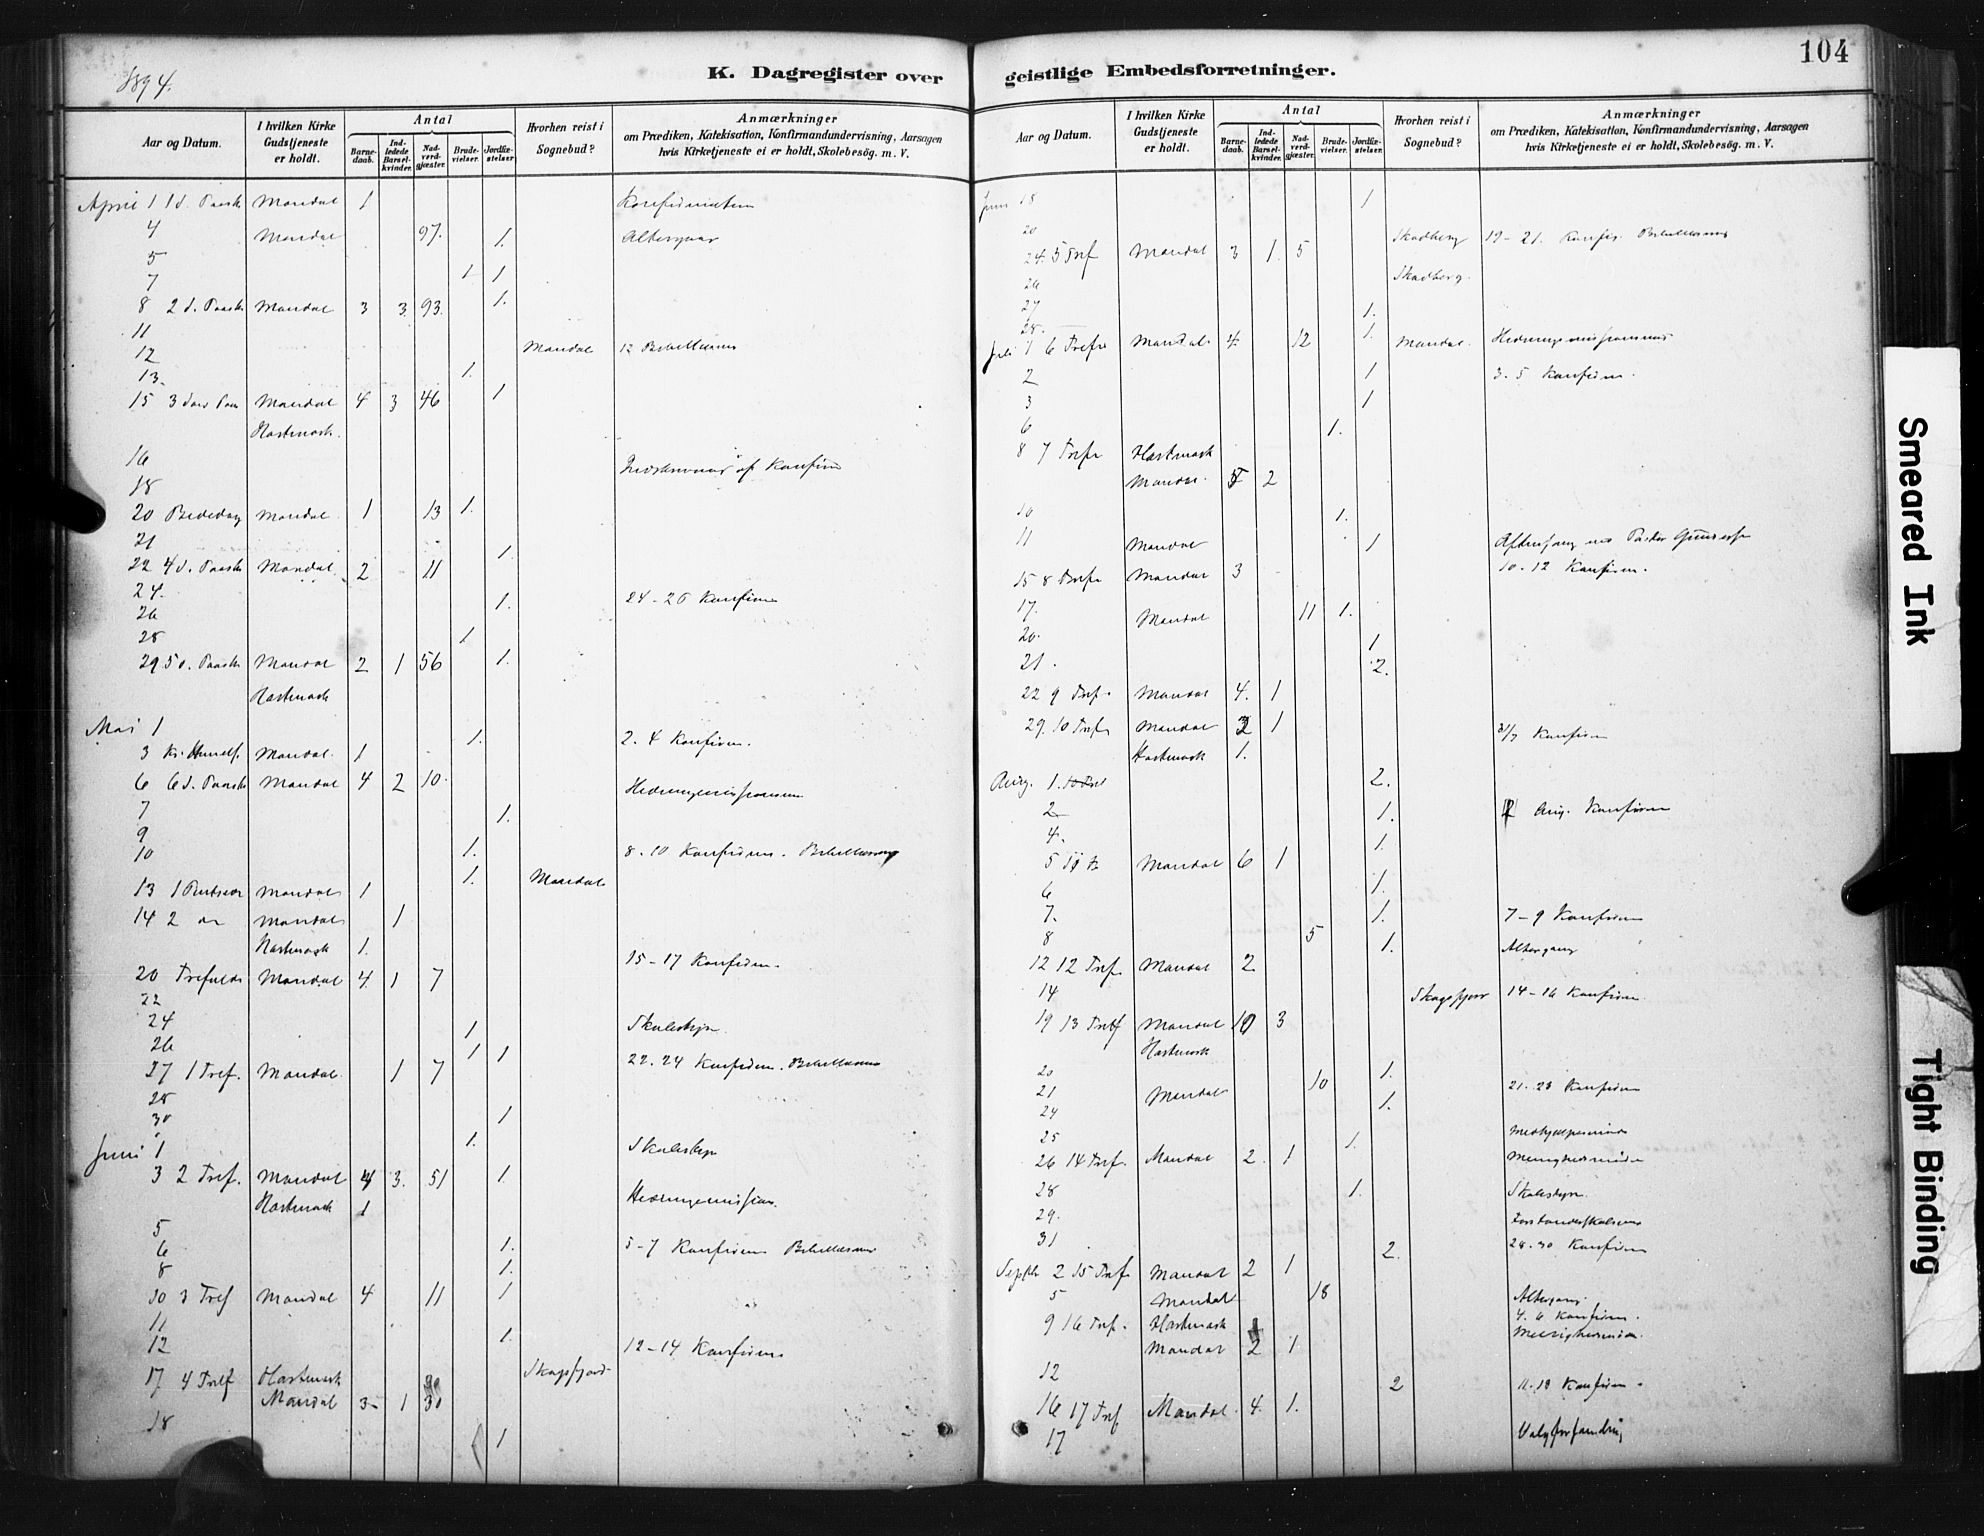 104
1894.
K. Dagregister over geistlige Embedsforretninger.
Aar og Datum.
I hvilken Kirke Gudstjeneste er holdt.
Antal
Barnedaab.
Indledede Barselkvinder.
Nadverdgjæster.
Brudevielser.
Jordfæstelser.
Hvorhen reist i Sognebud?
Anmærkninger
om Prædiken, Katekisation, Konfirmandundervisning, Aarsagen
hvis Kirketjeneste ei er holdt, Skolebesøg. m. V.
April 1 1 d. Paask Mandal 1 Konfirmation
4 Mandal 97. 1. Altergang
5
7 1 1
8 2 d. Paask Mandal 3 3 93. 1.
11
12 Mandal 12 Bibellæsning
13. 1.
15 3 Mandal 4 3 46 1
Hartmark.
16
18 af Konfirm
20 Bededag Mandal 1 13 1.
21
22 4 d. Paask Mandal 2 11 1.
24.
26 1. 24-26 Konfirm
28 1
29 5 d. Paask Mandal 2 1 56 1.
Hartmark
Mai 1
3 Kr. Himmelf. Mandal. 1 1. 2-4 Konfirm.
6 6 d. Paask Mandal 4 2 10. Hedningemissionen
7 1.
9
10 1. 8-10 Konfirm. Bibellæsning
13 1 Pintsedag Mandal 1 1. Mandal
14 2 Mandal 1
Hartmark 1.
15-17 Konfirm.
20 Trefold Mandal 4 1 7
22
24 1 Skolestyre
26 1 1
27 1 Tref. Mandal. 1 7 22-24 Konfirm. Bibellæsning
28
30 1
Juni 1 1. Skolestyr
3 2 Tref. Mandal 4 3. 51 1.
Hartmark 1 Hedningemission.
5
6 1. 5-7 Konfirm Bibellæsning
8 1.
10 3 Tref Mandal 4 11 1
11
12 1. 12-14 Konfirm
17 4 Tref Hartmark Skogsfjord
Mandal 3 1 30
18 1
Aar og Datum.
I hvilken Kirke Gudstjeneste er holdt.
Antal
Barnedaab.
Indledede Barselkvinder.
Nadverdgjæster.
Brudevielser.
Jordfæstelser.
Hvorhen reist i Sognebud?
Anmærkninger
om Prædiken, Katekisation, Konfirmandundervisning, Aarsagen
hvis Kirketjeneste ei er holdt, Skolebesøg. m. V.
Juni 18 1
20 Skadberg 19-21. Konfir. Bibellæsning
24. 5 Tref Mandal 3 1. 5
26 Skadberg.
27 1.
28. 1.
Juli 1 6 Tref Mandal 4. 12 Mandal. Hedningemissionen
2 1 3-5 Konfirm.
3 1
6 1.
8 7 Tref Hartmark
Mandal. 5 2
10 1.
11 Mandal 1 Aftensang ved Pastor
15 8 Tref Mandal 3 10-12 Konfirm.
17. Mandal 11 1.
20. 1
21. 2.
22 9 Tref. Mandal 4. 1
29. 10 Tref Mandal 2 1 31/7 Konfirm
Hartmark 1.
Aug. 1. 2.
2 1. Aug. Konfirm
4. 1.
5 Mandal 6 1
6 1.
7. 1. 7-9 Konfirm
8 5 1. Altergang
12 12 Tref. Mandal 2.
14 Skogsfjord 14-16 Konfirm.
19 13 Tref Mandal 10 3
Hartmark
20 1.
21 Mandal 10 21-23 Konfirm
24 1.
25 1. Medhjælpermøde
26 14 Tref. Mandal 2. 1 Menighedsmøde
28 1. Skolestyre.
29. Forstanderskab
31 2. 28-30 Konfirm
Septbr 2 15 Tref Mandal 2 1
5 Mandal 18 Altergang.
4-6 Konfirm.
9 16 Tref. Hartmark Menighedsmøde.
Mandal 2 1
12 2 11-13 Konfirm.
16 17 Tref Mandal. 4. 1.
17 Valgforsamling
Smeared Ink
Tight Binding